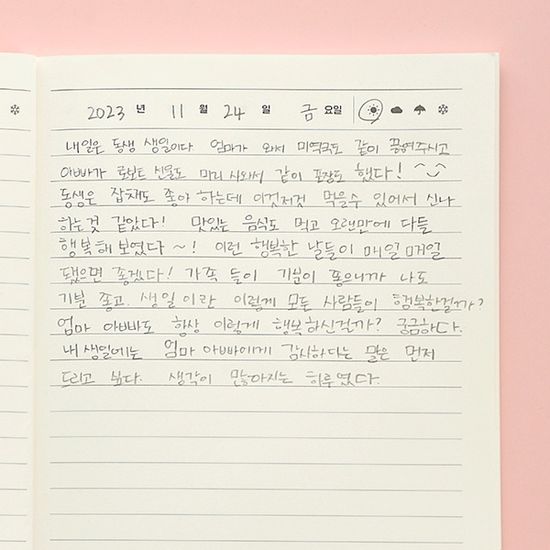 2023 년 11 월 24 일 금 요일
내일은 동생 생일이다 엄마가 와서 미역국도 같이 끓여주시고
아빠가 로보트 선물도 미리 사와서 같이 포장도 했다!
동생은 잡채도 좋아 하는데 이것저것 먹을수 있어서 신나
하는것 같았다! 맛있는 음식도 먹고 오랜만에 다들
행복해 보였다~! 이런 행복한 날들이 매일 매일
됐으면 좋겠다! 가족 들이 기분이 좋으니까 나도
기분 좋고. 생일 이란 이렇게 모든 사람들이 행복한걸까?
엄마 아빠도 항상 이렇게 행복하신건가? 궁금하다.
내 생일에는 엄마 아빠에게 감사하다는 말은 먼저
드리고 싶다. 생각이 많아지는 하루 였다.